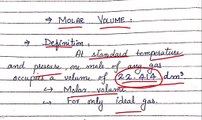 ⇒ MOLAR VOLUME :
⇒ Definition
At standard temperature
and pressure, one mole of any gas
occupies a volume of 22.414 dm³
↳ Molar volume
↳ For only ideal gas.